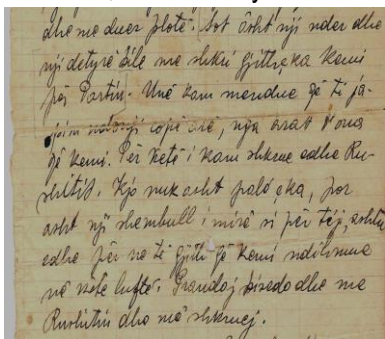 dhe me duer plotë. Sot âsht nji nder dhe
nji detyrë që me shkri gjithçka kemi
për Partin. Unë kam mendue që ti ja-
pim ndonji copë arë, nga arat tona
që kemi. Për ketë i kam shkrue edhe Ru-
shitit. Kjo nuk asht pak çka, por
asht nji shembull i mirë si për tej, ashtu
edhe për ne të gjithë që kemi ndihmue
në ketë luftë. Prandaj bisedo dhe me
Rushitin dhe më shkruej.